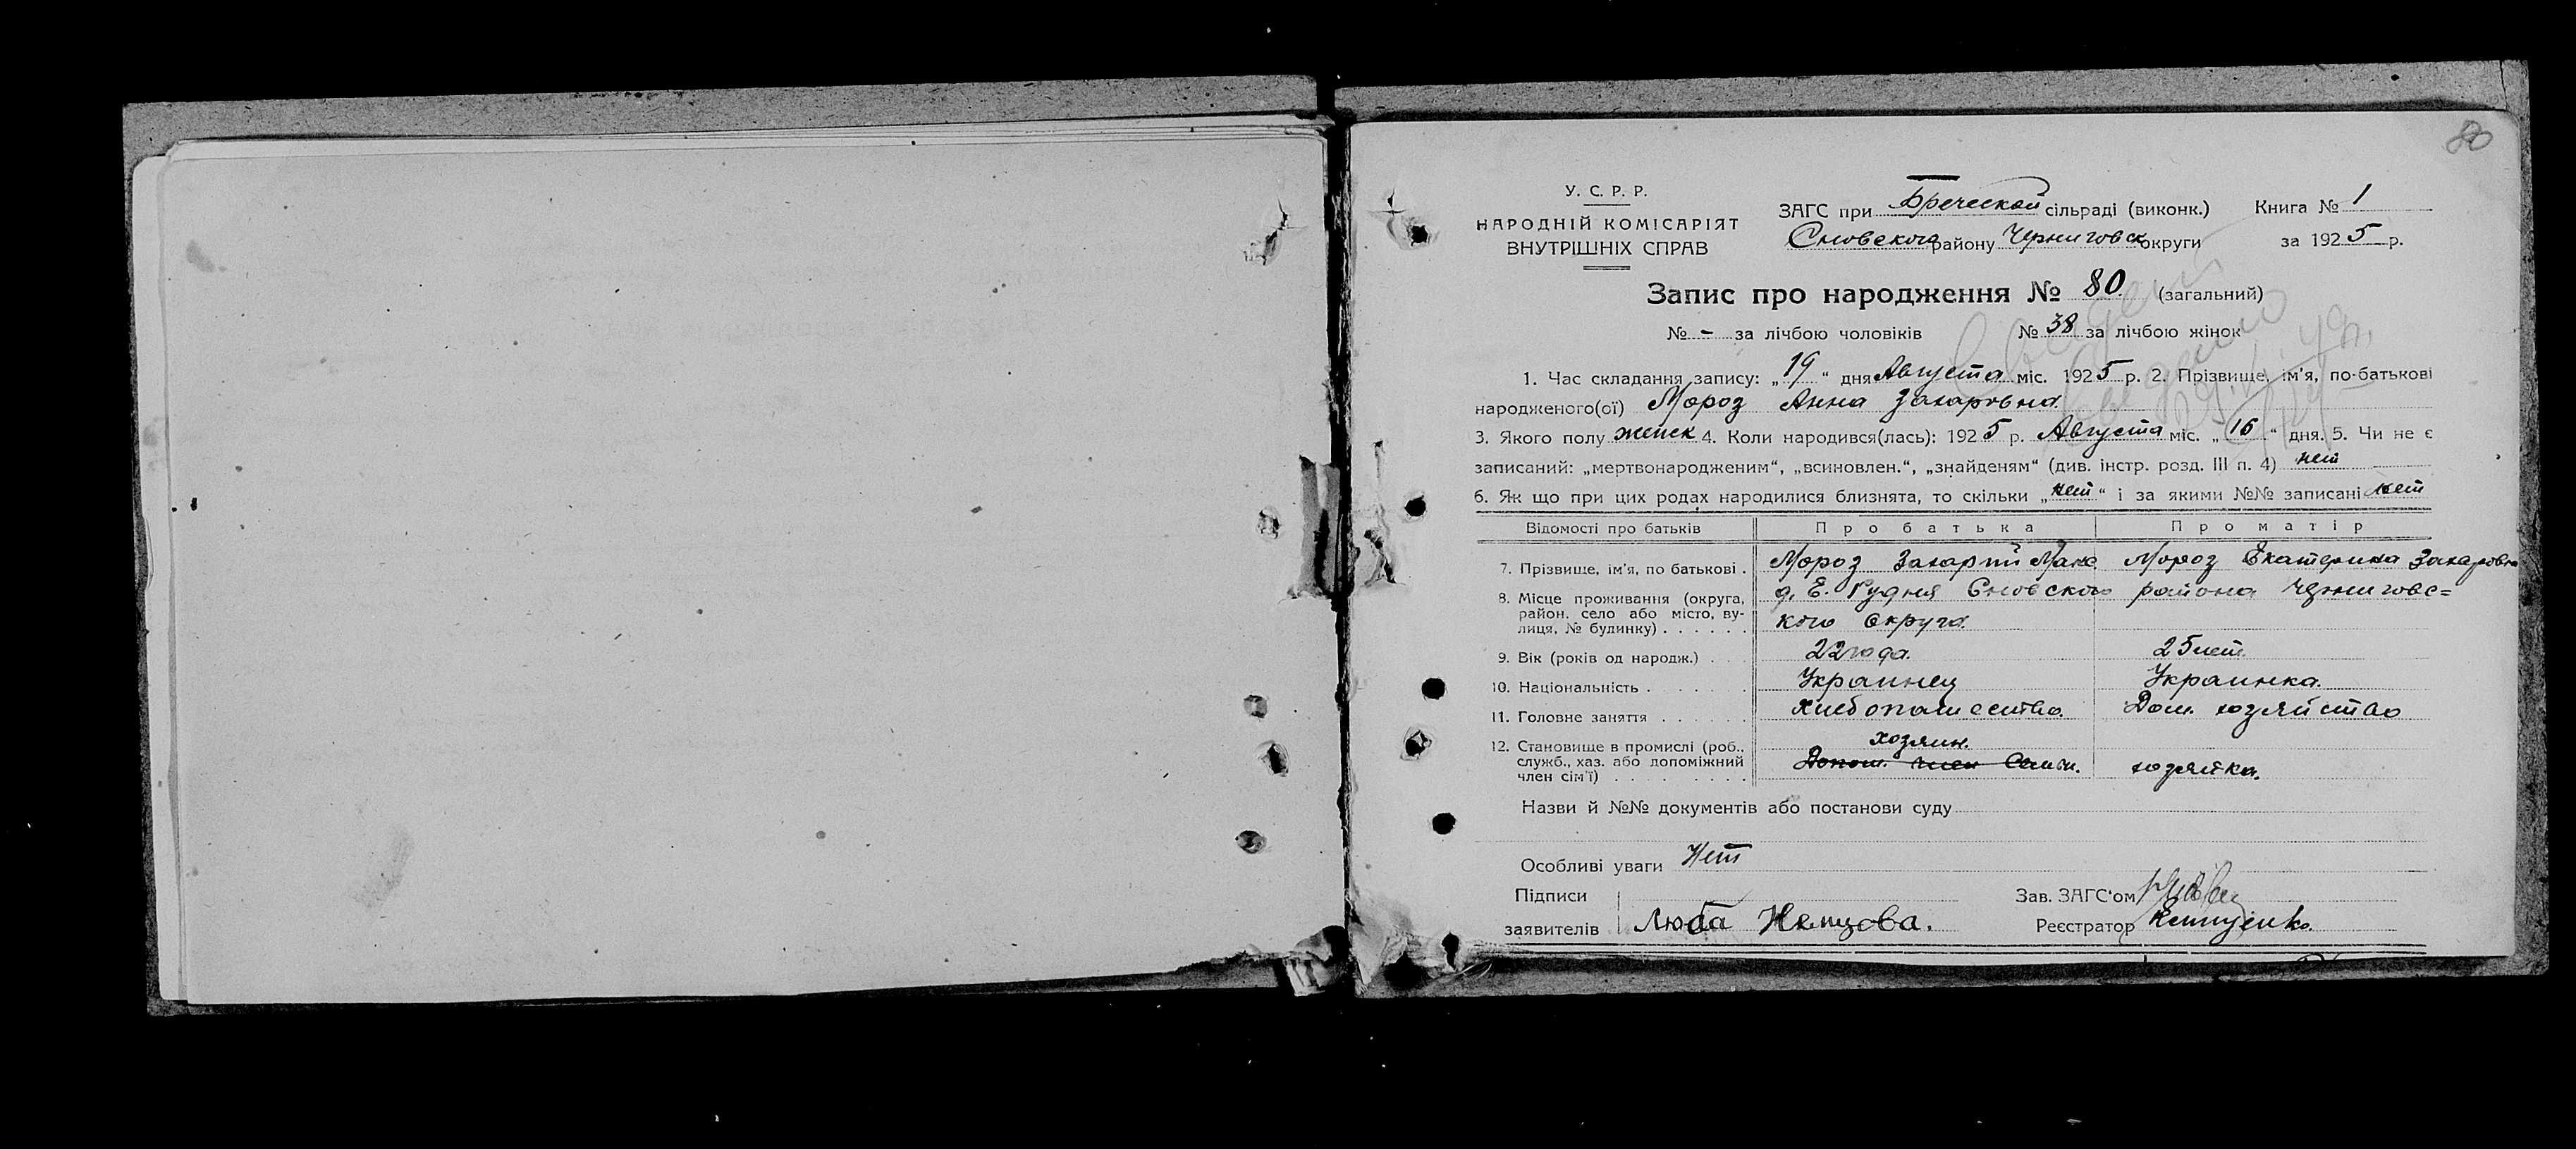 80
У. С. Р. Р.
НАРОДНІЙ КОМІСАРІЯТ
ВНУТРІШНІХ СПРАВ
ЗАГС при Бреческой сільраді (виконк.) Книга № 1
Сновского району Черниговск округи за 1925 р.
Запис про народження № 80. (загальний)
№ - за лічбою чоловіків № 38 за лічбою жінок
1. Час складання запису: „19“ дня Августа міс. 1925 р. 2. Прізвище, ім'я, по-батькові
народженого(ої) Мороз Анна Захаровна.
3. Якого полу женск 4. Коли народився(лась): 1925 р. Августа міс. „16“ дня. 5. Чи не є
записаний: „мертвонародженим“, „всиновлен.“, „знайденям“ (див. інстр. розд. III п. 4) нет
6. Як що при цих родах народилися близнята, то скільки „нет“ і за якими №№ записані нет
Відомості про батьків Про батька Про матір
7. Прізвище, ім'я, по батькові . Мороз Захарий Мороз Екатерина Захаровна
8. Місце проживання (округа, д. Е. Рудня Сновского района Черниговс=
район, село або місто, ву-
лиця, № будинку) . . . . . . кого округа.
9. Вік (років од народж.) . 22 года. 25 лет.
10. Національність . . . . . . Украинец Украинка.
11. Головне заняття . . . . . . хлебопашество. Дом. хозяйство
12. Становище в промислі (роб., хозяин.
служб., хаз. або допоміжний Допом. член Семьи. хозяйка.
член сім'ї) . . . . . . . .
Назви й №№ документів або постанови суду
Особливі уваги Нет
Підписи Зав. ЗАГС'ом
заявителів Люба Немцова. Реєстратор